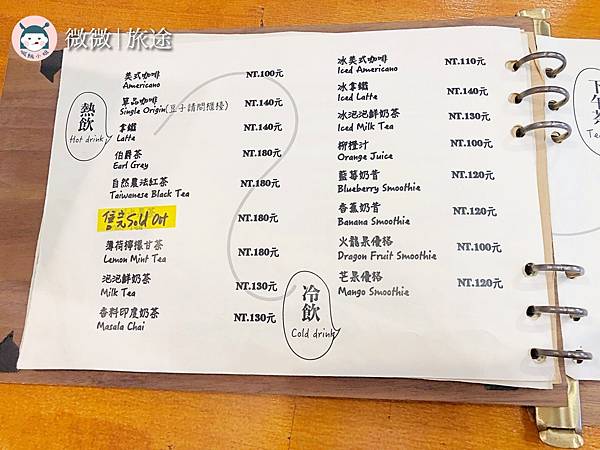 微微|旅途
熱飲
Hot drink
美式咖啡 NT.100元
Americano
單品咖啡 NT.140元
Single Origin(豆子請問櫃檯)
拿鐵 NT.140元
Latte
伯爵茶 NT.180元
Earl Grey
自然農法紅茶 NT.180元
Taiwanese Black Tea
售完Sold Out NT.180元
薄荷檸檬甘茶 NT.180元
Lemon Mint Tea
泡泡鮮奶茶 NT.130元
Milk Tea
香料印度奶茶 NT.130元
Masala Chai
冷飲
Cold drink
冰美式咖啡 NT.110元
Iced Americano
冰拿鐵 NT.140元
Iced Latte
冰泡泡鮮奶茶 NT.130元
Iced Milk Tea
柳橙汁 NT.100元
Orange Juice
藍莓奶昔 NT.120元
Blueberry Smoothie
香蕉奶昔 NT.120元
Banana Smoothie
火龍果優格 NT.100元
Dragon Fruit Smoothie
芒果優格 NT.120元
Mango Smoothie
下午茶
Tea